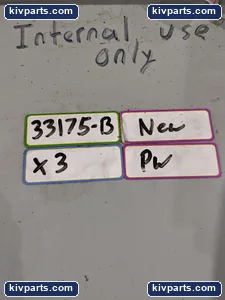 kivparts.com kivparts.com
Internal use
only
33175-B New
x3 PW
kivparts.com kivparts.com